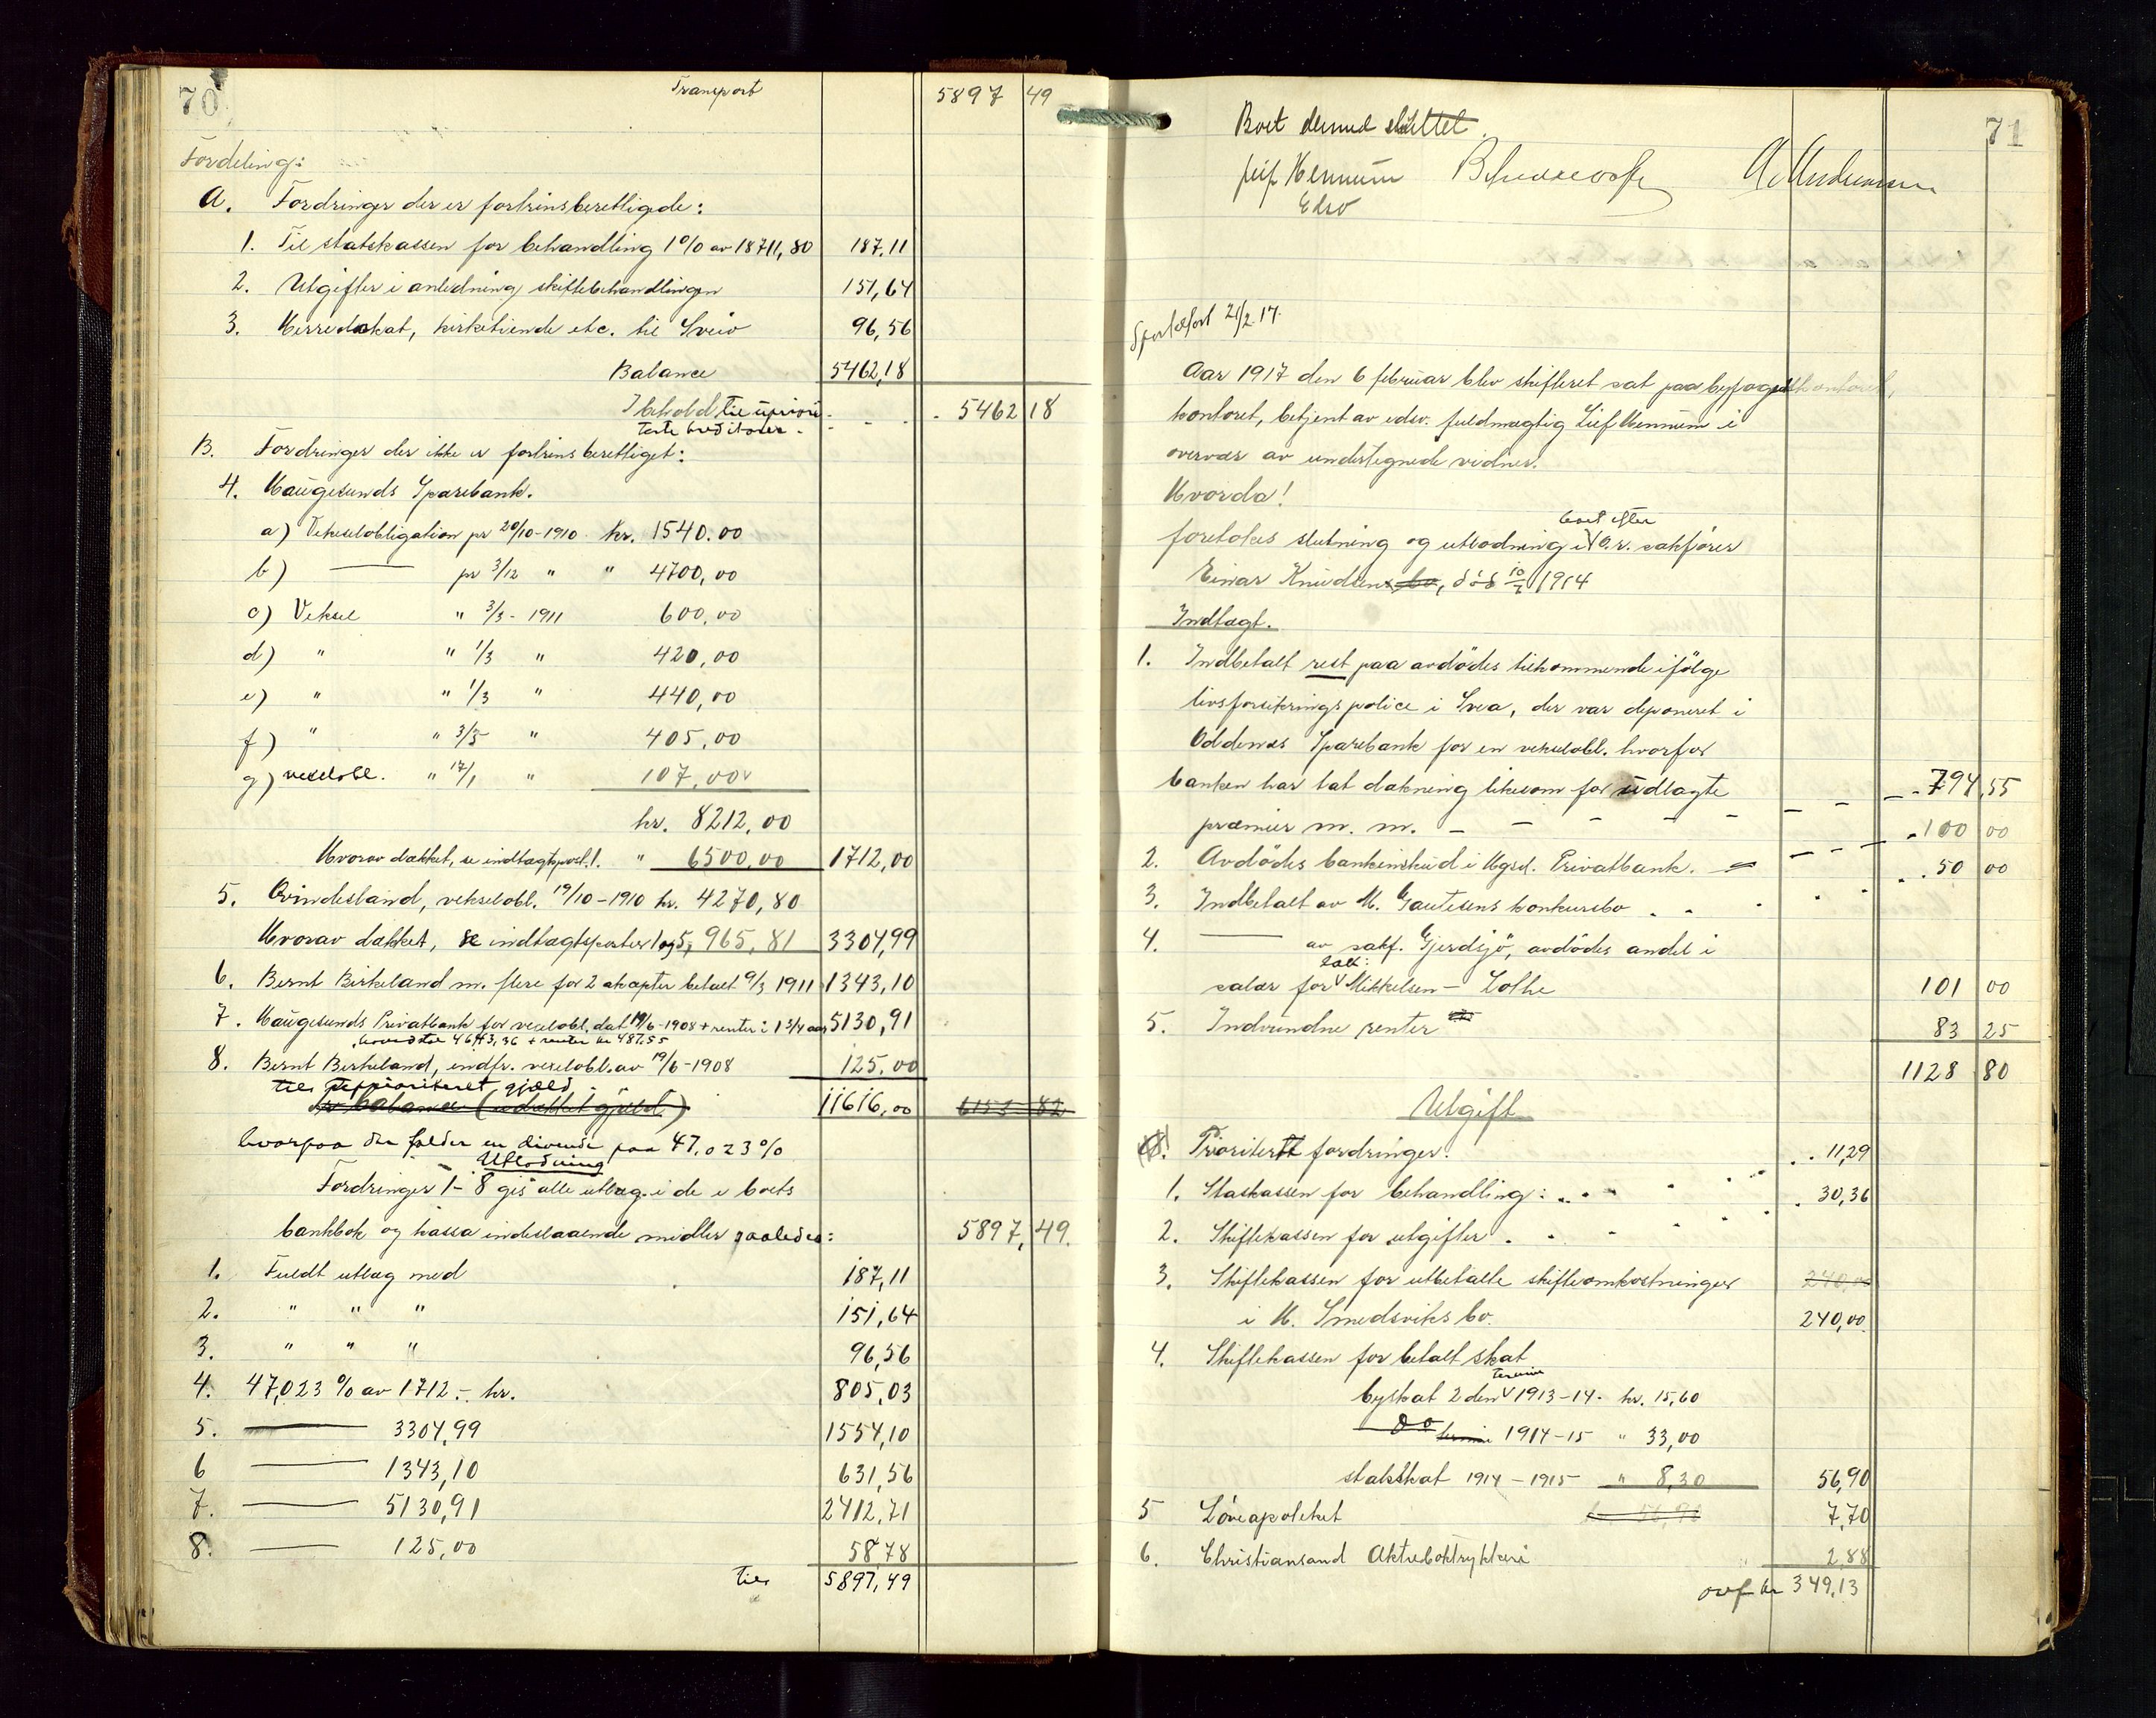 70
Transport 5897 49
Fordeling:
A. Fordringer der er fortrinsberettigede:
1. Til statskassen for behandling 1% av 18711,80 187,11
2. Utgifter i anledning skiftebehandlingen 151,64
3. Herredskat, kirketiende etc. til Sveio 96,56
Balance 5462,18
I behold til upriori- 5462 18
terte kreditorer.
B. Fordringer der ikke er fortrinsberettiget:
4. Haugesunds Sparebank.
a) Vekselobligation pr 20/10-1910 kr. 1540.00
b) —— pr 3/12 " " 4700,00
c) Veksel " 3/3 - 1911 600,00
d) " " 1/3 " 420,00
e) " " 1/3 " 440,00
f) " " 3/5 " 405,00
g) vekselobl. " 17/1 " 107,00
kr. 8212,00
Hvorav dækket, se indtægtspost 1. " 6500,00 1712,00
5. Kvindesland, vekselobl. 19/10-1910 kr. 4270,80
Hvorav dækket, se indtægtsposter 1 og 5, 965,81 3304,99
6. Bernt Birkeland m. flere for 2 aksepter betalt 9/3 1911 1343,10
7. Haugesunds Privatbank for vekselobl. dat 19/6-1908 + renter i 1 3/4 aar 5130,91
hovedstol 4643,36 + renter kr 487,55
8. Bernt Birkeland, indfr. vekselobl. av 19/6-1908 125,00
til uprioriteret gjæld
balance (udækket gjæld) 11616,00 6153 82
hvorpaa der falder en dividende paa 47,023%
Utlodning
Fordringer 1-8 gis alle utlæg i de i boets
bankbok og kassa indestaaende midler saaledes: 5897,49.
1. Fuldt utlæg med 187,11
2. " " " 151,64
3. " " " 96,56
4. 47,023 % av 1712.- kr. 805,03
5. —— 3304,99 1554,10
6 —— 1343,10 631,56
7. —— 5130,91 2412,71
8. —— 125,00 58,78
til 5897,49
71
Boet dermed sluttet.
Leif Hennum
Edsv
Sportelført 21/2.17.
Aar 1917 den 6 februar blev skifteret sat paa byfogd
kontoret, betjent av edsv. fuldmægtig Leif Hennum i
overvær av undertegnede vidner.
Hvorda!
boet efter
foretokes slutning og utlodning i O.r. sakfører
Einar Knudsens bo, död 10/7 1914
Indtægt.
1. Indbetalt rest paa avdödes tilkommende ifölge
livsforsikringspolice i Svea, der var deponeret i
Oddernes Sparebank for en vekselobl. hvorfor
banken har tat dækning likesom for udlagte
præmier m. m. 794,55
2. Avdödes bankinskud i Hgsd. Privatbank. 100 00
3. Indbetalt av M. Gautesens konkursbo 50 00
4. —— av sakf. Gjerdsjö, avdödes andel i
salær for Mikkelsen - Lothe 101 00
5. Indvundne renter 83 25
1128 80
Utgift
Prioritert fordringer.
1. Staskassen for behandling: 11,29
2. Skiftekassen for utgifter. 30,36
3. Skiftekassen for utbetalte skifteomkostninger 240,00
i H. Smedsviks bo. 240,00.
4. Skiftekassen for betalt skat
termin
byskat 2 den 1913-14. kr. 15,60
Do termin 1914-15 " 33,00
statsskat 1914-1915 " 8,30 56,90
5 Löveapoteket 7,70
6. Christiansand Aktieboktrykkeri 2,88
ovf kr 349,13